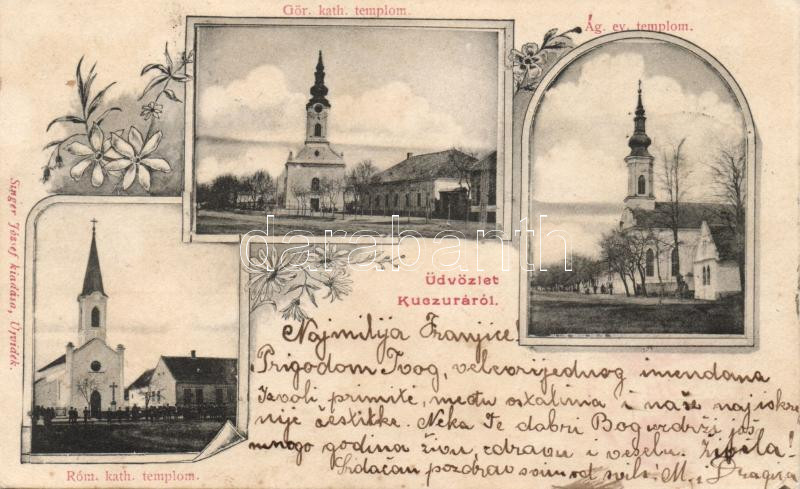 Gör. kath. templom.
Ág. ev. templom.
Singer József kiadása, Újvidék.
darabanth
Üdvözlet
Kuczuráról.
Najmilija Franjice!
Prigodom Tvog, velevrijednog imendana
izvoli primiti, među ostalima i naše najiskre-
nije čestitke. Neka Te dobri Bog uzdrži još
mnogo godina živu, zdravu i veselu. Živila!
Srdačan pozdrav svima od
Róm. kath. templom.